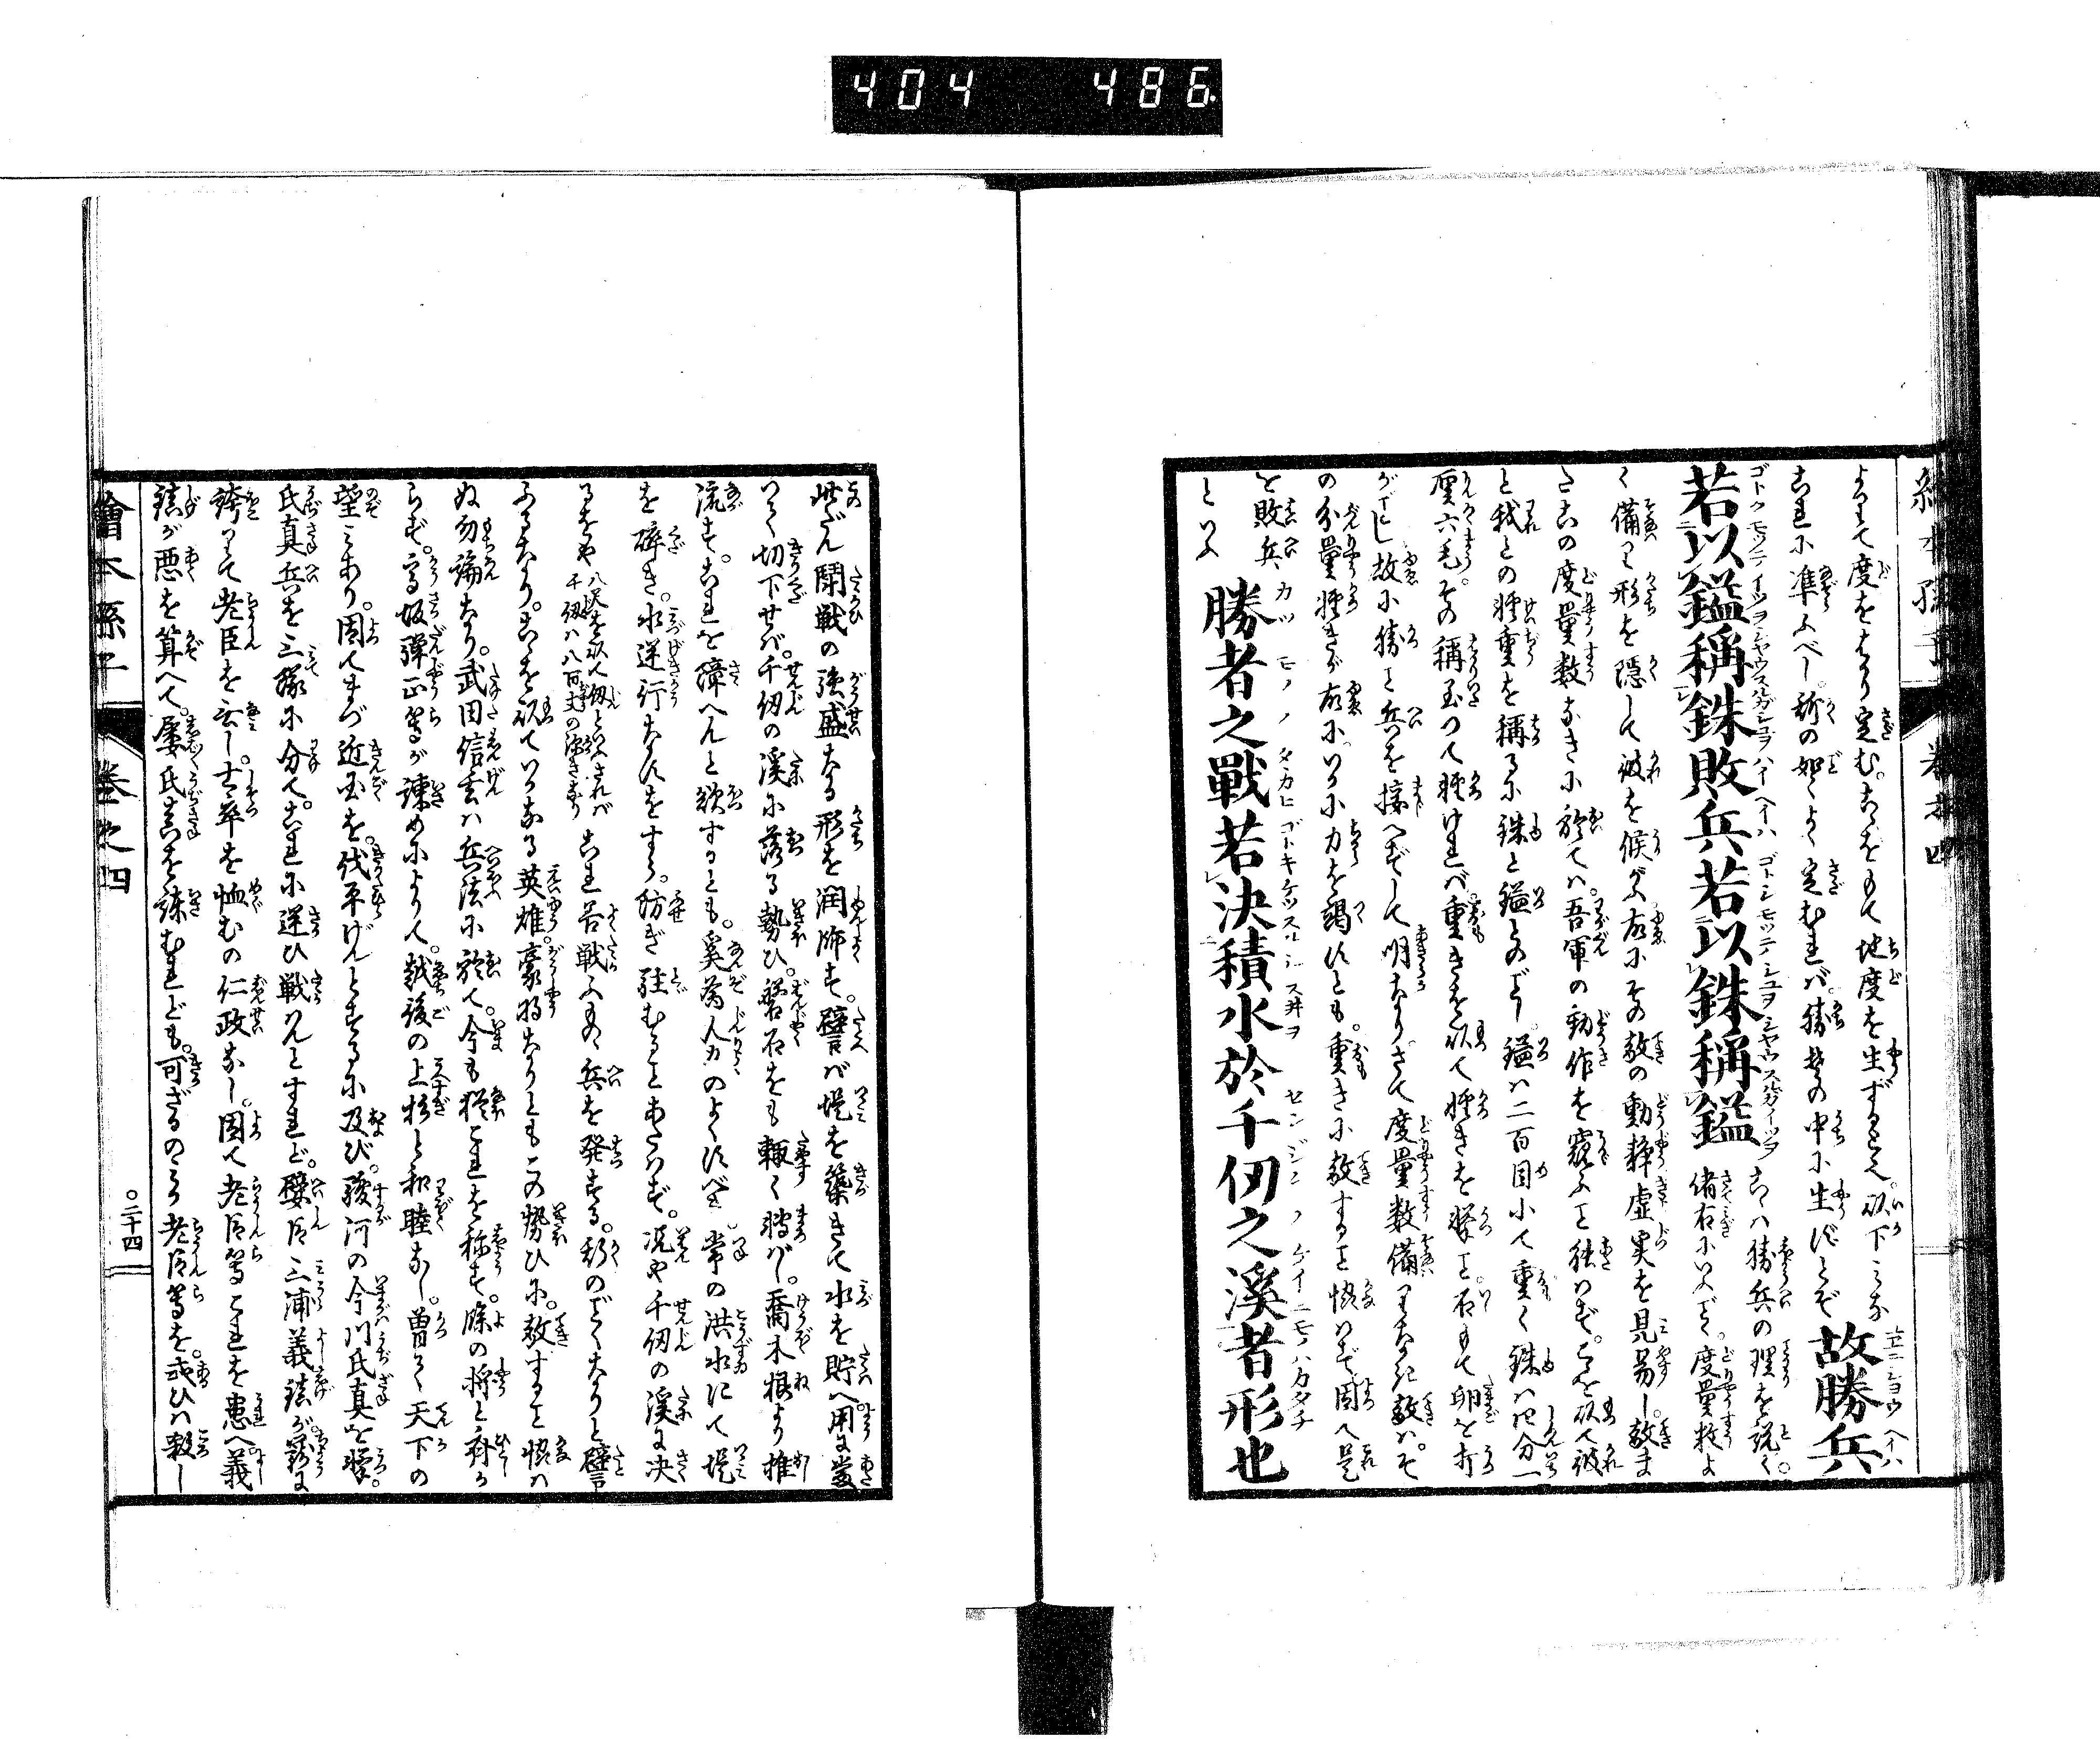 404 486
よつて度をはかり定む。これをもて地度を生ずるといへり。以下ミな
これに準ふべし。斯の如くよく定むれバ。勝其の中に生ずとぞ 故勝兵
若以鎰稱銖敗兵若以銖稱鎰 これハ勝兵の理を説く。
備え形を隠して彼を候がふ故に其の敵の動静虚実を見易し。敵ま
たこの度量数なきに於てハ。吾軍の動作を窺ふこと能はず。これを以て彼
と我との軽重を稱るに銖と鎰とのごとし。鎰ハ二百目にて重く銖ハ四分一
厘六毛。其の稱至つて軽けれバ。重きを以て軽きを撃こと。石もて卵を打
がごとし。故に勝こと兵を接へずして明なり。さて度量数備りなき敵ハ。そ
の分量軽きが故に。いかに力を竭すとも。重きに敵すること能はず。因て是
を敗兵
といふ 勝者之戰若決積水於千仞之溪者形也
此だん闘戦の強盛なる形を潤飾す。譬バ堤を築きて水を貯へ。用に發
いて切下せバ。千仞の溪に落る勢ひ。磐石をも輙く轉バし。喬木根より推
流す。これを障へんと欲するとも。奚為人力のよくすべき。常の洪水にて堤
を碎き。水逆行なすをすら。防ぎ駐むることあたはず。况や千仞の溪に決
るをや 八尺を以て仞といふされバ千仞ハ八百丈の深きなり これ善戦ふもの兵を発する。形のごとくなりと譬言
ふるなり。これを以ていかなる英雄。豪将なりともこの勢ひに。敵すること能は
ぬ勿論なり。武田信玄ハ兵法に於て。今も猶これを称す。餘の将と齊か
らず。高坂弾正等が諫めによりて。越後の上杉と和睦なし。曽て天下の
望ミあり。因てまづ近国を。伐平げんとするに及び。駿河の今川氏真を撃。
氏真兵を三隊に分て。これに逆ひ戦はんとすれど。嬖臣三浦義鎮が寵に
誇りて老臣を蔑し。士卒を恤むの仁政なし。因て老臣等これを患へ。義
鎮が悪を算へて。屡氏真を諫むれども。可ざるのミか老臣等を。或ひハ殺し
繪本孫子
巻之四
〇二十四